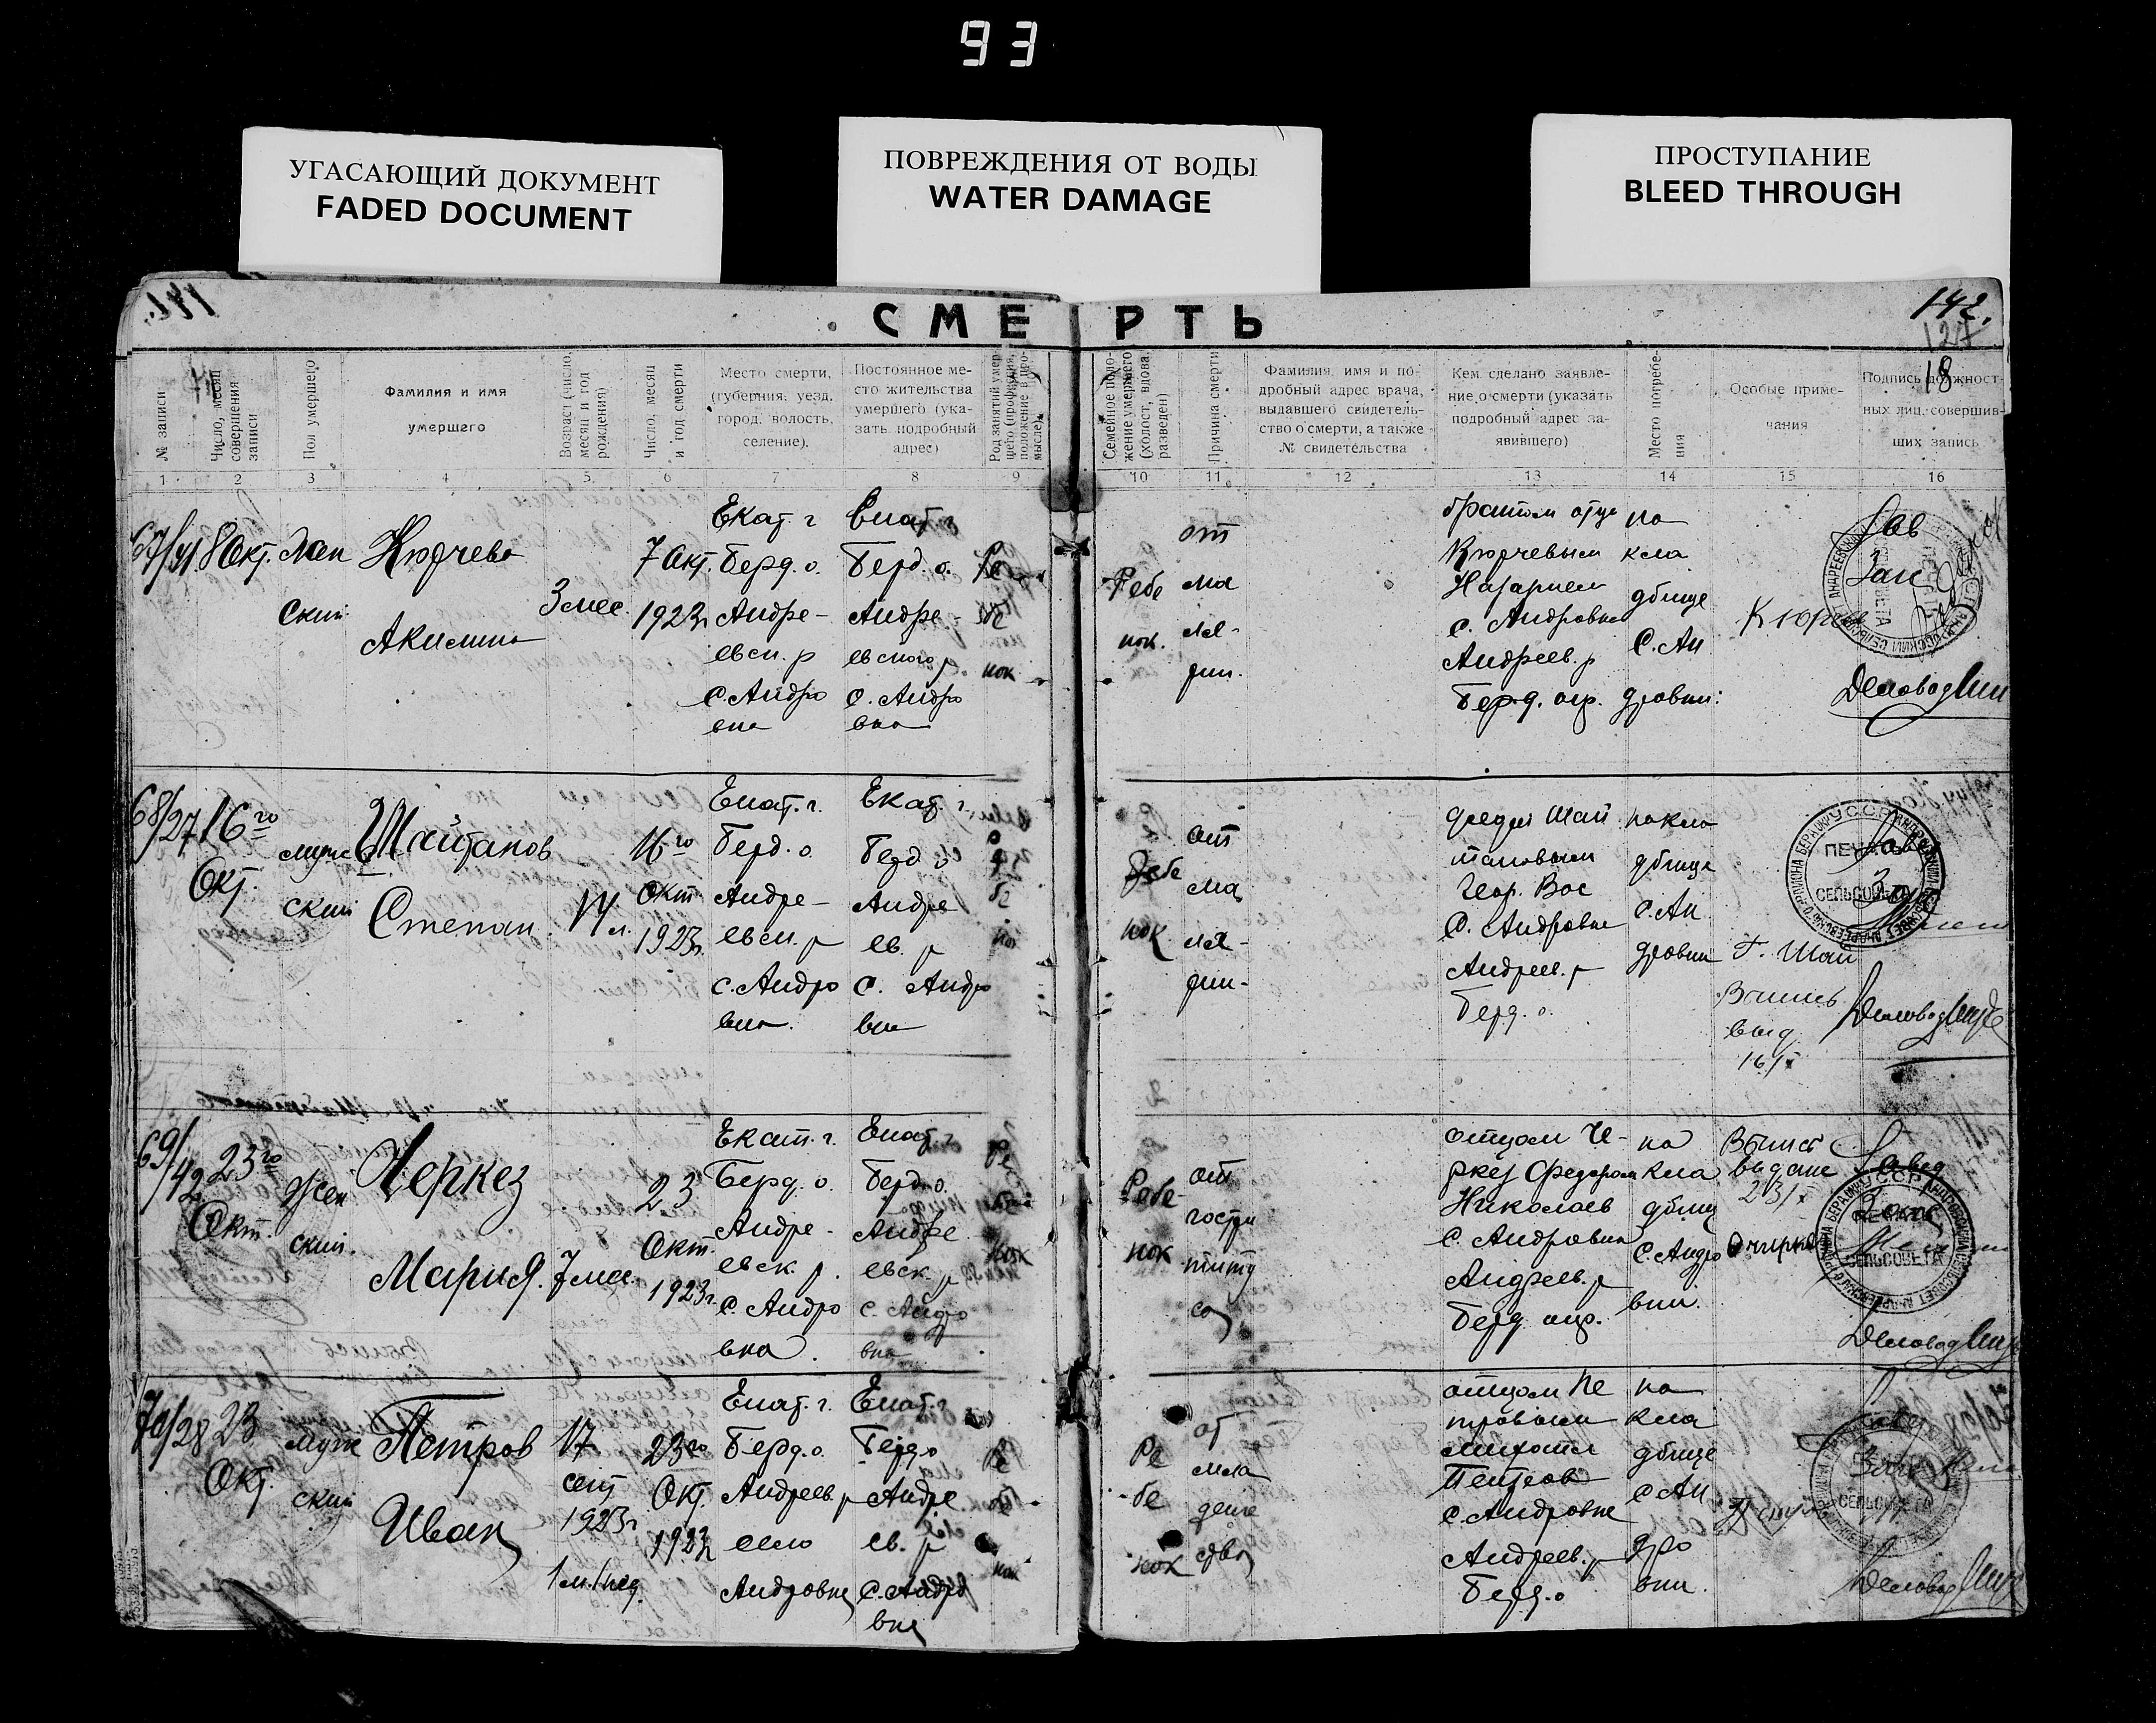 93
УГАСАЮЩИЙ ДОКУМЕНТ
FADED DOCUMENT
ПОВРЕЖДЕНИЯ ОТ ВОДЫ
WATER DAMAGE
ПРОСТУПАНИЕ
BLEED THROUGH
142.
127
18
СМЕРТЬ
№ записи
Число, месяц совершения записи
Пол умершего
Фамилия и имя
умершего
Возраст (число, месяц и год рождения)
Число, месяц и год смерти
Место смерти,
(губерния, уезд,
город, волость,
селение).
Постоянное ме-
сто жительства
умершего (ука-
зать подробный
адрес)
Род занятий умер-
шего (профессия,
положение в про-
мысле).
Семейное поло-
жение умершего
(холост, вдова.
разведен)
Причина смерти
Фамилия, имя и по-
дробный адрес врача,
выдавшего свидетель-
ство о смерти, а также
№ свидетельства
Кем сделано заявле-
ние о смерти (указать
подробный адрес за-
явившего)
Место погребе-
ния
Особые приме-
чания
Подпись должност-
ных лиц, совершив-
ших запись
1 2 3 4 5 6 7 8 9 10 11 12 13 14 15 16
67/41
8 Окт.
жен
ский
Кюрчева
Акилина
3 мес.
7 Окт.
1923г
Екат. г
Берд. о.
Андре-
евск. р
с. Андро
вка
Екат. г
Берд. о.
Андре-
евского р.
с. Андро
вка
Ре
бе
нок
Ребе
нок.
от
ма
ля-
рии.
братом отца
Кюрчевым
Назарием
с. Андровке
Андреев. р
Берд. окр.
на
кла
дбище
С. Ан
дровки:
Зав
Заг
Деловод
68/27
16го
Окт.
мужс
ский
Шайтанов
Степан
14 л.
16го
Окт
1923г.
Екат. г.
Берд. о.
Андре-
евск. р
с. Андро
вка.
Екат. г.
Берд. о
Андре
ев. р
с. Андро
вка
Ре
бе
нок
Ребе
нок
от
ма
ля-
рии-
дядей Шай
тановым
Геор. Вас
С. Андровке
Андреев. р
Берд. о.
на кла
дбище
С. Ан
дровки
Г. Шай
Выпись
выд
16/X
ПЕЧАТЬ
СЕЛЬСОВЕТА
Завед
Заг
Деловод
69/42
23го
Окт.
жен
ский.
Черкез
Мария.
7 мес.
23
Окт.
1923г.
Екат. г.
Берд. о.
Андре-
евск. р.
с. Андро
вка.
Екат. г
Берд. о.
Андре
евск. р
с. Андро
вка
Ре
бе
нок
Ребе-
нок
от
отцом Че-
ркез Федором
Николаев
с. Андровка
Андреев. р
Берд. окр.
на
кла
дбищ
С. Андро
вки.
Выпись
выдана
23/X
Завед
Загс
СЕЛЬСОВЕТА
Деловод
70/28
23
Окт.
муж
ский
Петров
Иван
17
сент
1923г
1 м. 1 нед.
23го
Окт.
1923г
Екат. г.
Берд. о.
Андреев. р
село
Андровка
Екат. г
Берд. о
Андре
ев. р
с. Андро
вка
Ре
бе
нок
Ре
бе
нок
от
мла
денче
ства
отцом Пе
тровым
Михаил
Петров
с. Андровке
Андреев. р
Берд. о
на
кла
дбище
с Ан
дро
вки.
Завед
Загс
СЕЛЬСОВЕТА
Деловод